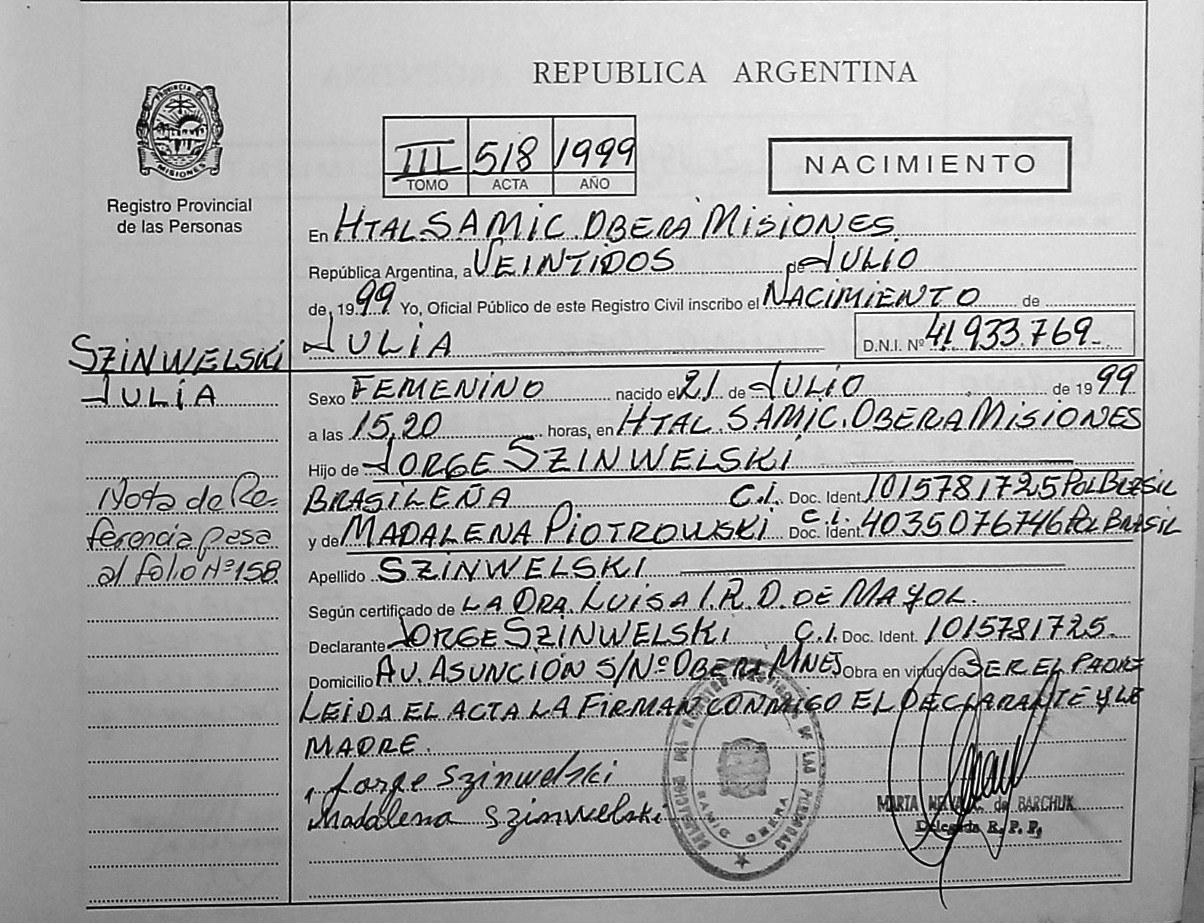 REPUBLICA ARGENTINA
PROVINCIA DE MISIONES
Registro Provincial
de las Personas
III 518 1999
TOMO ACTA AÑO
NACIMIENTO
En HTAL.SAMIC.OBERA MISIONES
República Argentina, a VEINTIDOS de JULIO
de 1999 Yo, Oficial Público de este Registro Civil inscribo el NACIMIENTO de
JULIA D.N.I. Nº 41.933.769
SZINWELSKI
JULIA
Sexo FEMENINO nacido el 21 de JULIO de 1999
a las 15,20 horas, en HTAL. SAMIC. OBERA MISIONES
Hijo de JORGE SZINWELSKI
BRASILEÑA C.I. Doc. Ident. 1015781725 POL BRASIL
y de MADALENA PIOTROWSKI C.I. Doc. Ident. 4035076746 POL BRASIL
Nota de Re-
ferencia pasa
al folio Nº 158
Apellido SZINWELSKI
Según certificado de LA DRA. LUISA I.R.D. DE MAYOL.
Declarante JORGE SZINWELSKI C.I. Doc. Ident. 1015781725.
Domicilio AV. ASUNCIÓN S/Nº OBERA MNES Obra en virtud de SER EL PADRE
LEIDA EL ACTA LA FIRMAN CONMIGO EL DECLARANTE Y LA
MADRE.
Jorge Szinwelski
Madalena Szinwelski
SAMIC OBERA
MARTA de BARCHUK
Delegada R. P. P.